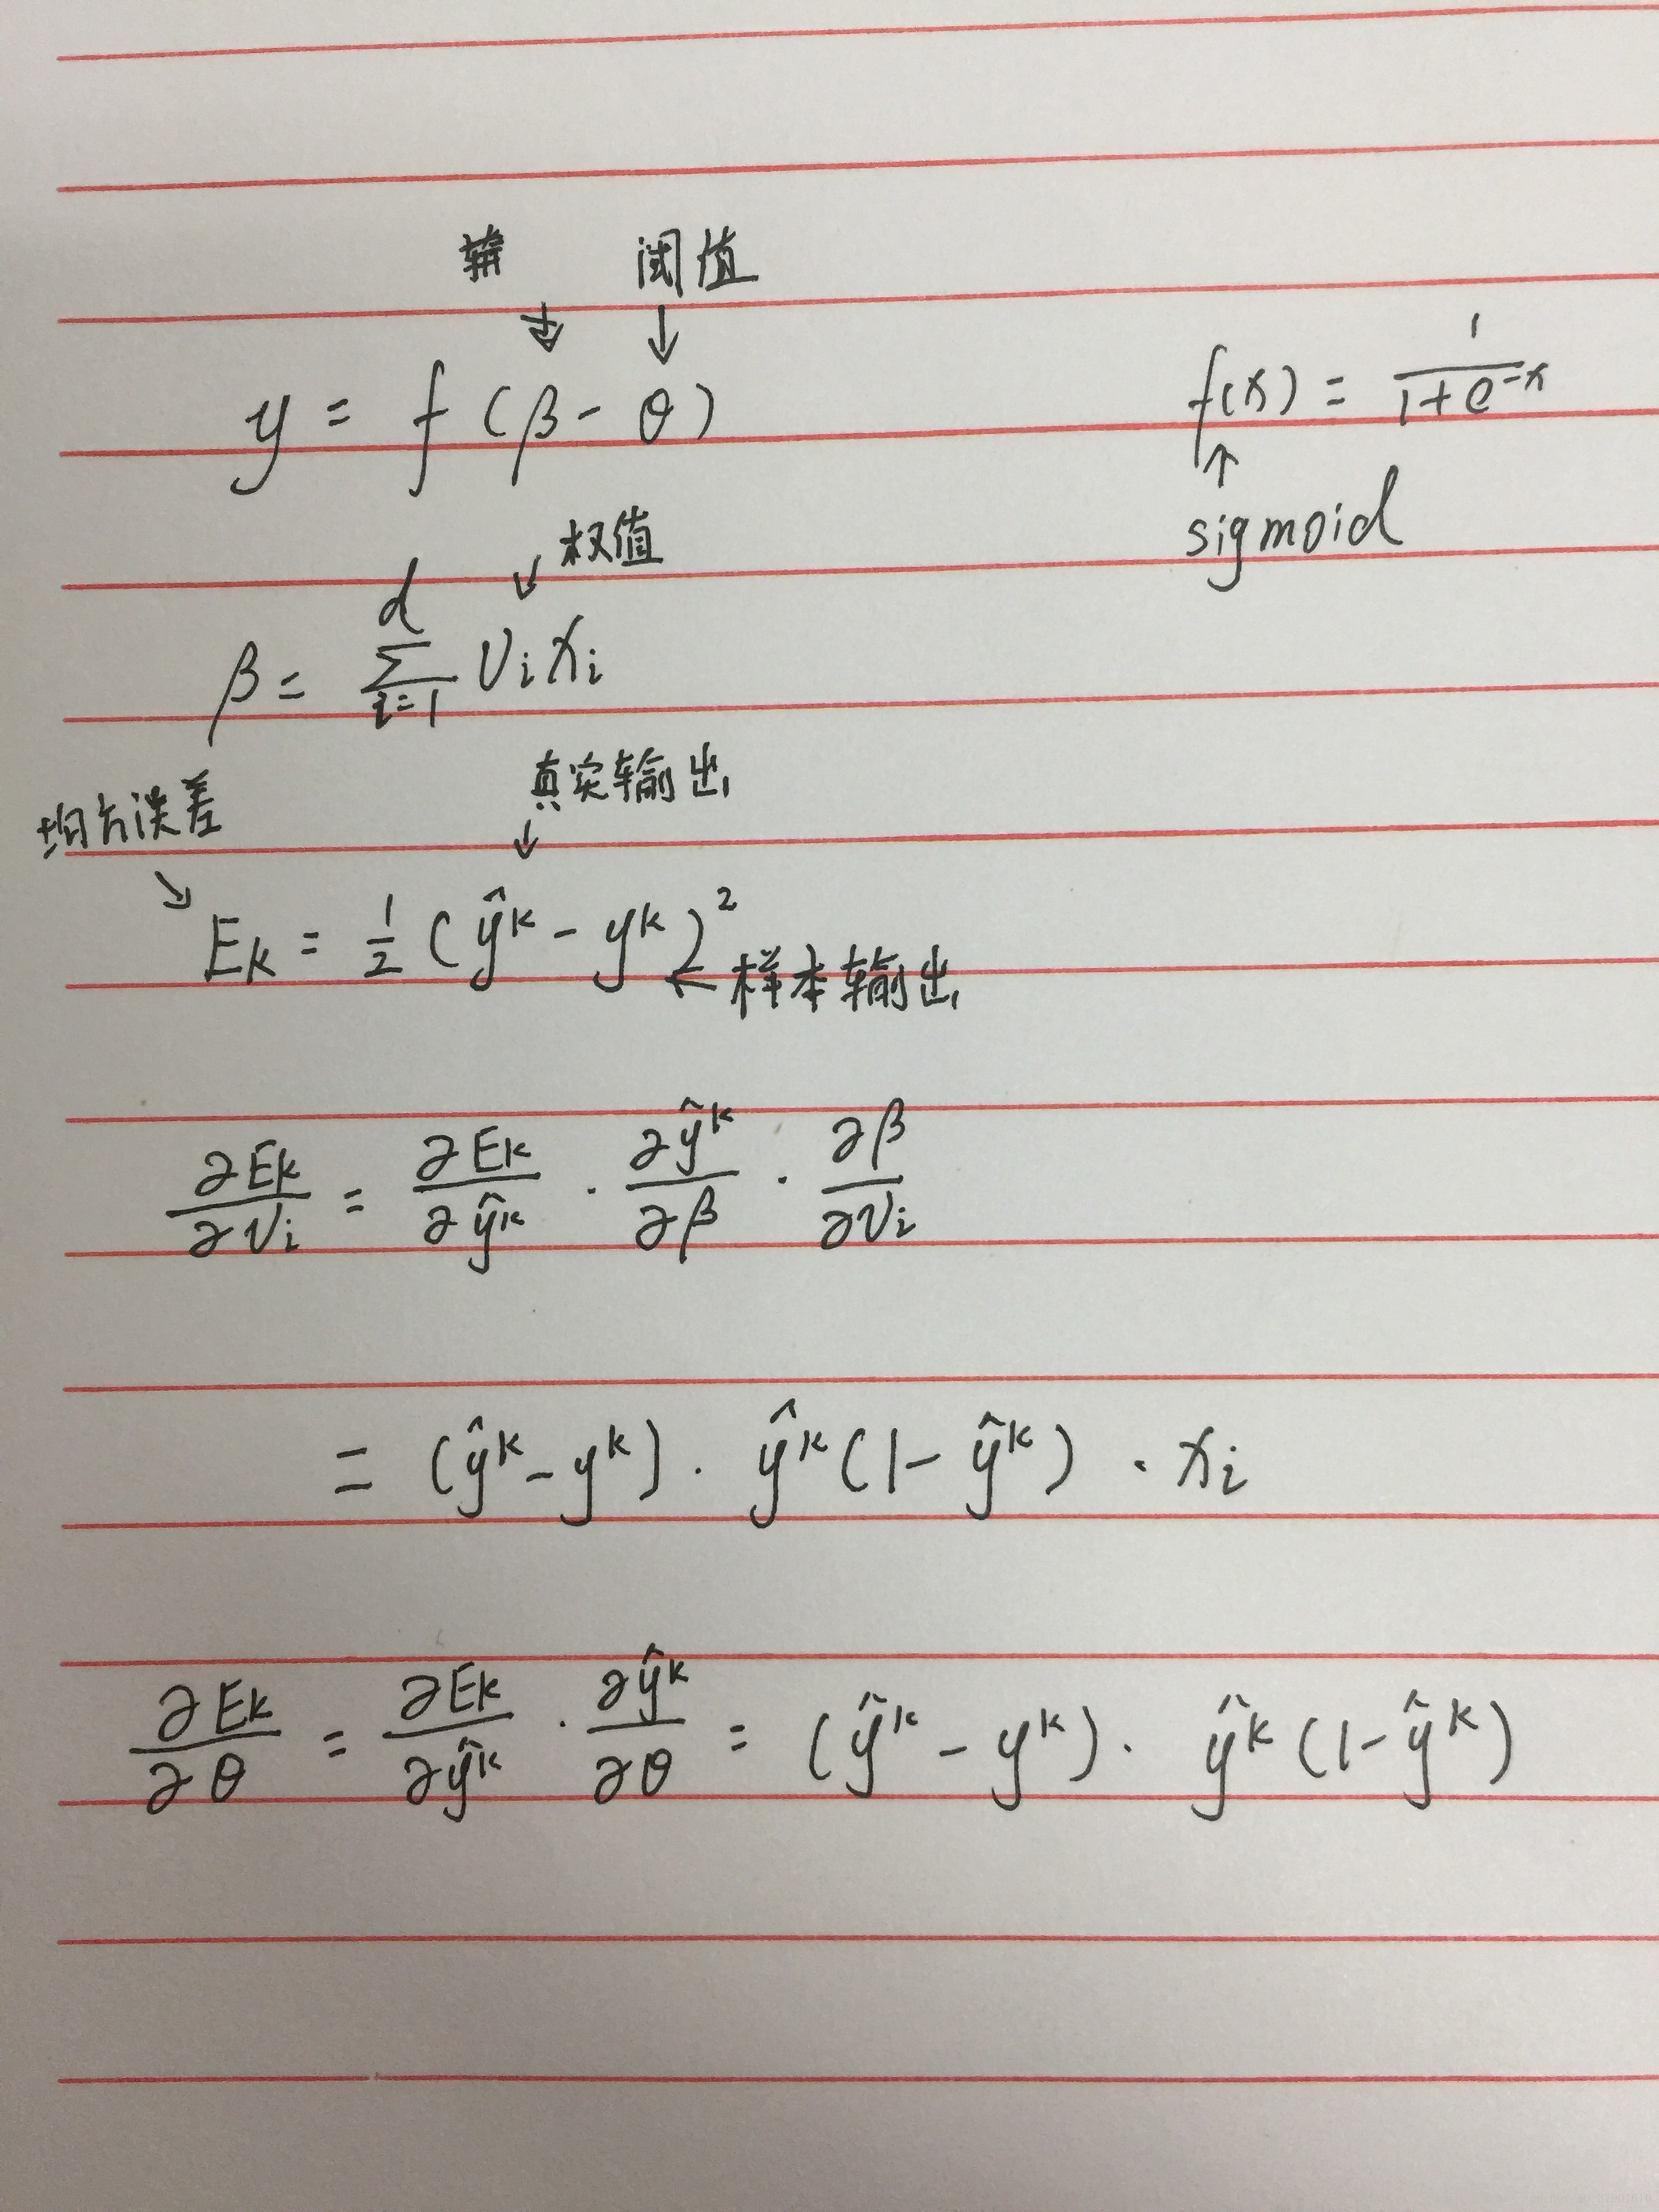 阈值
y = f(β - θ)
f(x) = 1/(1+e^-x)
↑
sigmoid
↙ 权值
β = Σ_{i=1}^{d} v_i x_i
真实输出
均方误差
E_k = 1/2 (ŷ^k - y^k)^2
← 样本输出
∂E_k/∂v_i = ∂E_k/∂ŷ^k · ∂ŷ^k/∂β · ∂β/∂v_i
= (ŷ^k - y^k) · ŷ^k(1 - ŷ^k) · x_i
∂E_k/∂θ = ∂E_k/∂ŷ^k · ∂ŷ^k/∂θ = (ŷ^k - y^k) · ŷ^k(1 - ŷ^k)